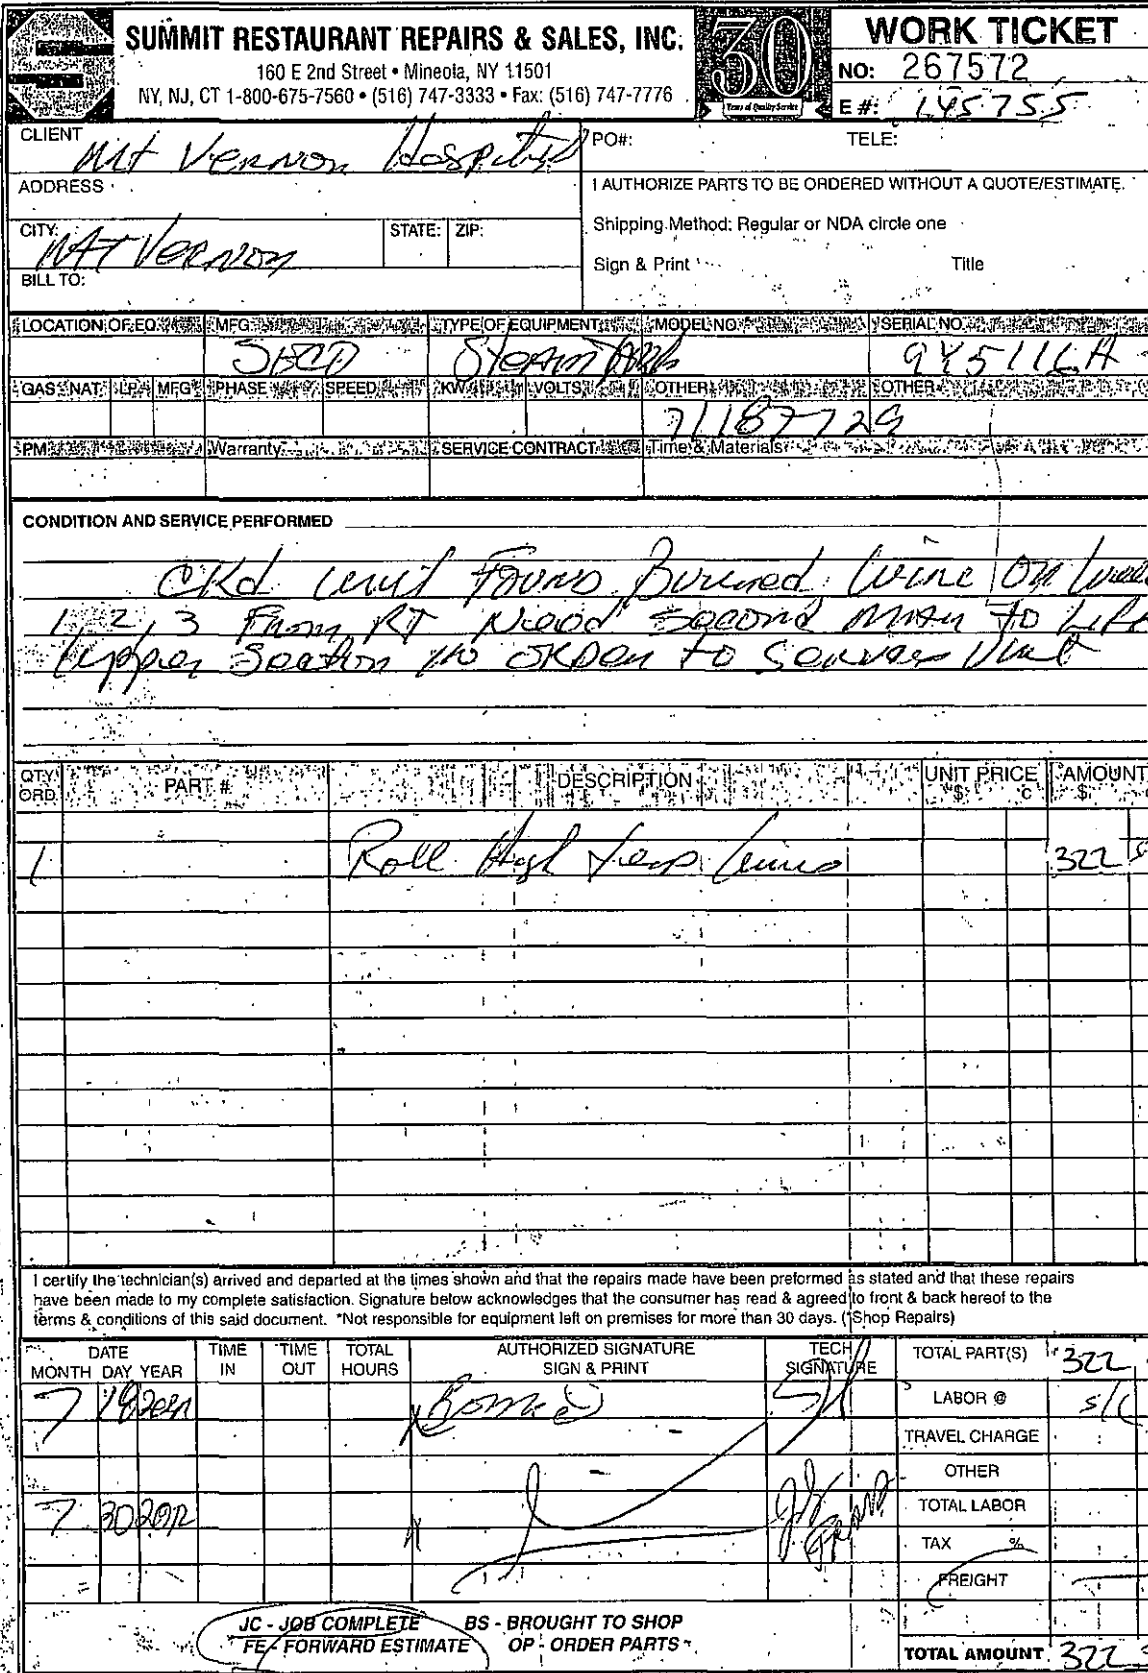 SUMMIT RESTAURANT REPAIRS & SALES, INC.
160 E 2nd Street • Mineola, NY 11501
NY, NJ, CT 1-800-675-7560 • (516) 747-3333 • Fax: (516) 747-7776
30
Years of Quality Service
WORK TICKET
NO: 267572
E #: 145755
CLIENT Mt Vernon Hospital
PO#: TELE:
ADDRESS
I AUTHORIZE PARTS TO BE ORDERED WITHOUT A QUOTE/ESTIMATE.
CITY: Mt Vernon STATE: ZIP:
Shipping Method: Regular or NDA circle one
Sign & Print Title
BILL TO:
LOCATION OF EQ. MFG. TYPE OF EQUIPMENT MODEL NO. SERIAL NO.
SECO Steam 945116A
GAS NAT. LP MFG PHASE SPEED KW VOLTS OTHER OTHER
71187729
PM Warranty SERVICE CONTRACT Time & Materials
CONDITION AND SERVICE PERFORMED
CKd unit Found Burned Wire On
1, 2, 3 From RT Need Second Man To Lift
Upper Section in order to Unit
QTY ORD PART # DESCRIPTION UNIT PRICE $ c AMOUNT $
1 Roll High Temp 322
I certify the technician(s) arrived and departed at the times shown and that the repairs made have been preformed as stated and that these repairs
have been made to my complete satisfaction. Signature below acknowledges that the consumer has read & agreed to front & back hereof to the
terms & conditions of this said document. *Not responsible for equipment left on premises for more than 30 days. (*Shop Repairs)
DATE MONTH DAY YEAR TIME IN TIME OUT TOTAL HOURS AUTHORIZED SIGNATURE SIGN & PRINT TECH SIGNATURE TOTAL PART(S) 322
7 LABOR @ S/C
TRAVEL CHARGE
OTHER
7 30 2012 TOTAL LABOR
TAX %
FREIGHT
JC - JOB COMPLETE BS - BROUGHT TO SHOP
FE - FORWARD ESTIMATE OP - ORDER PARTS
TOTAL AMOUNT 322